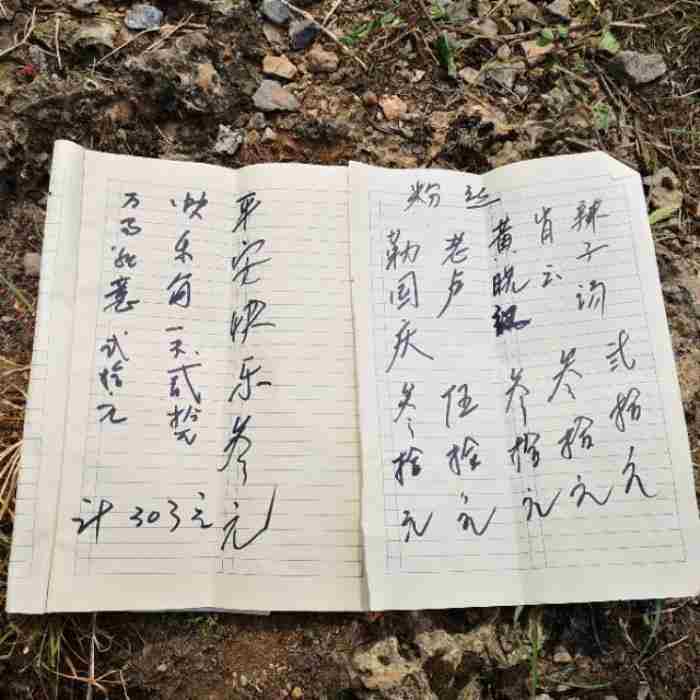 粉丝
辣子汤 弍拾元
肖云 叁拾元
黄晓 叁拾元
老卢 伍拾元
国庆 叁拾元
平安快乐 叁元
快乐每一天 贰拾元
万事如意 弍拾元
计 303元